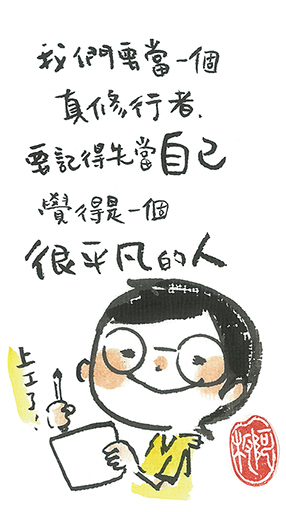 我們要當一個
真修行者.
要記得先當自己
覺得是一個
很平凡的人
上工了!